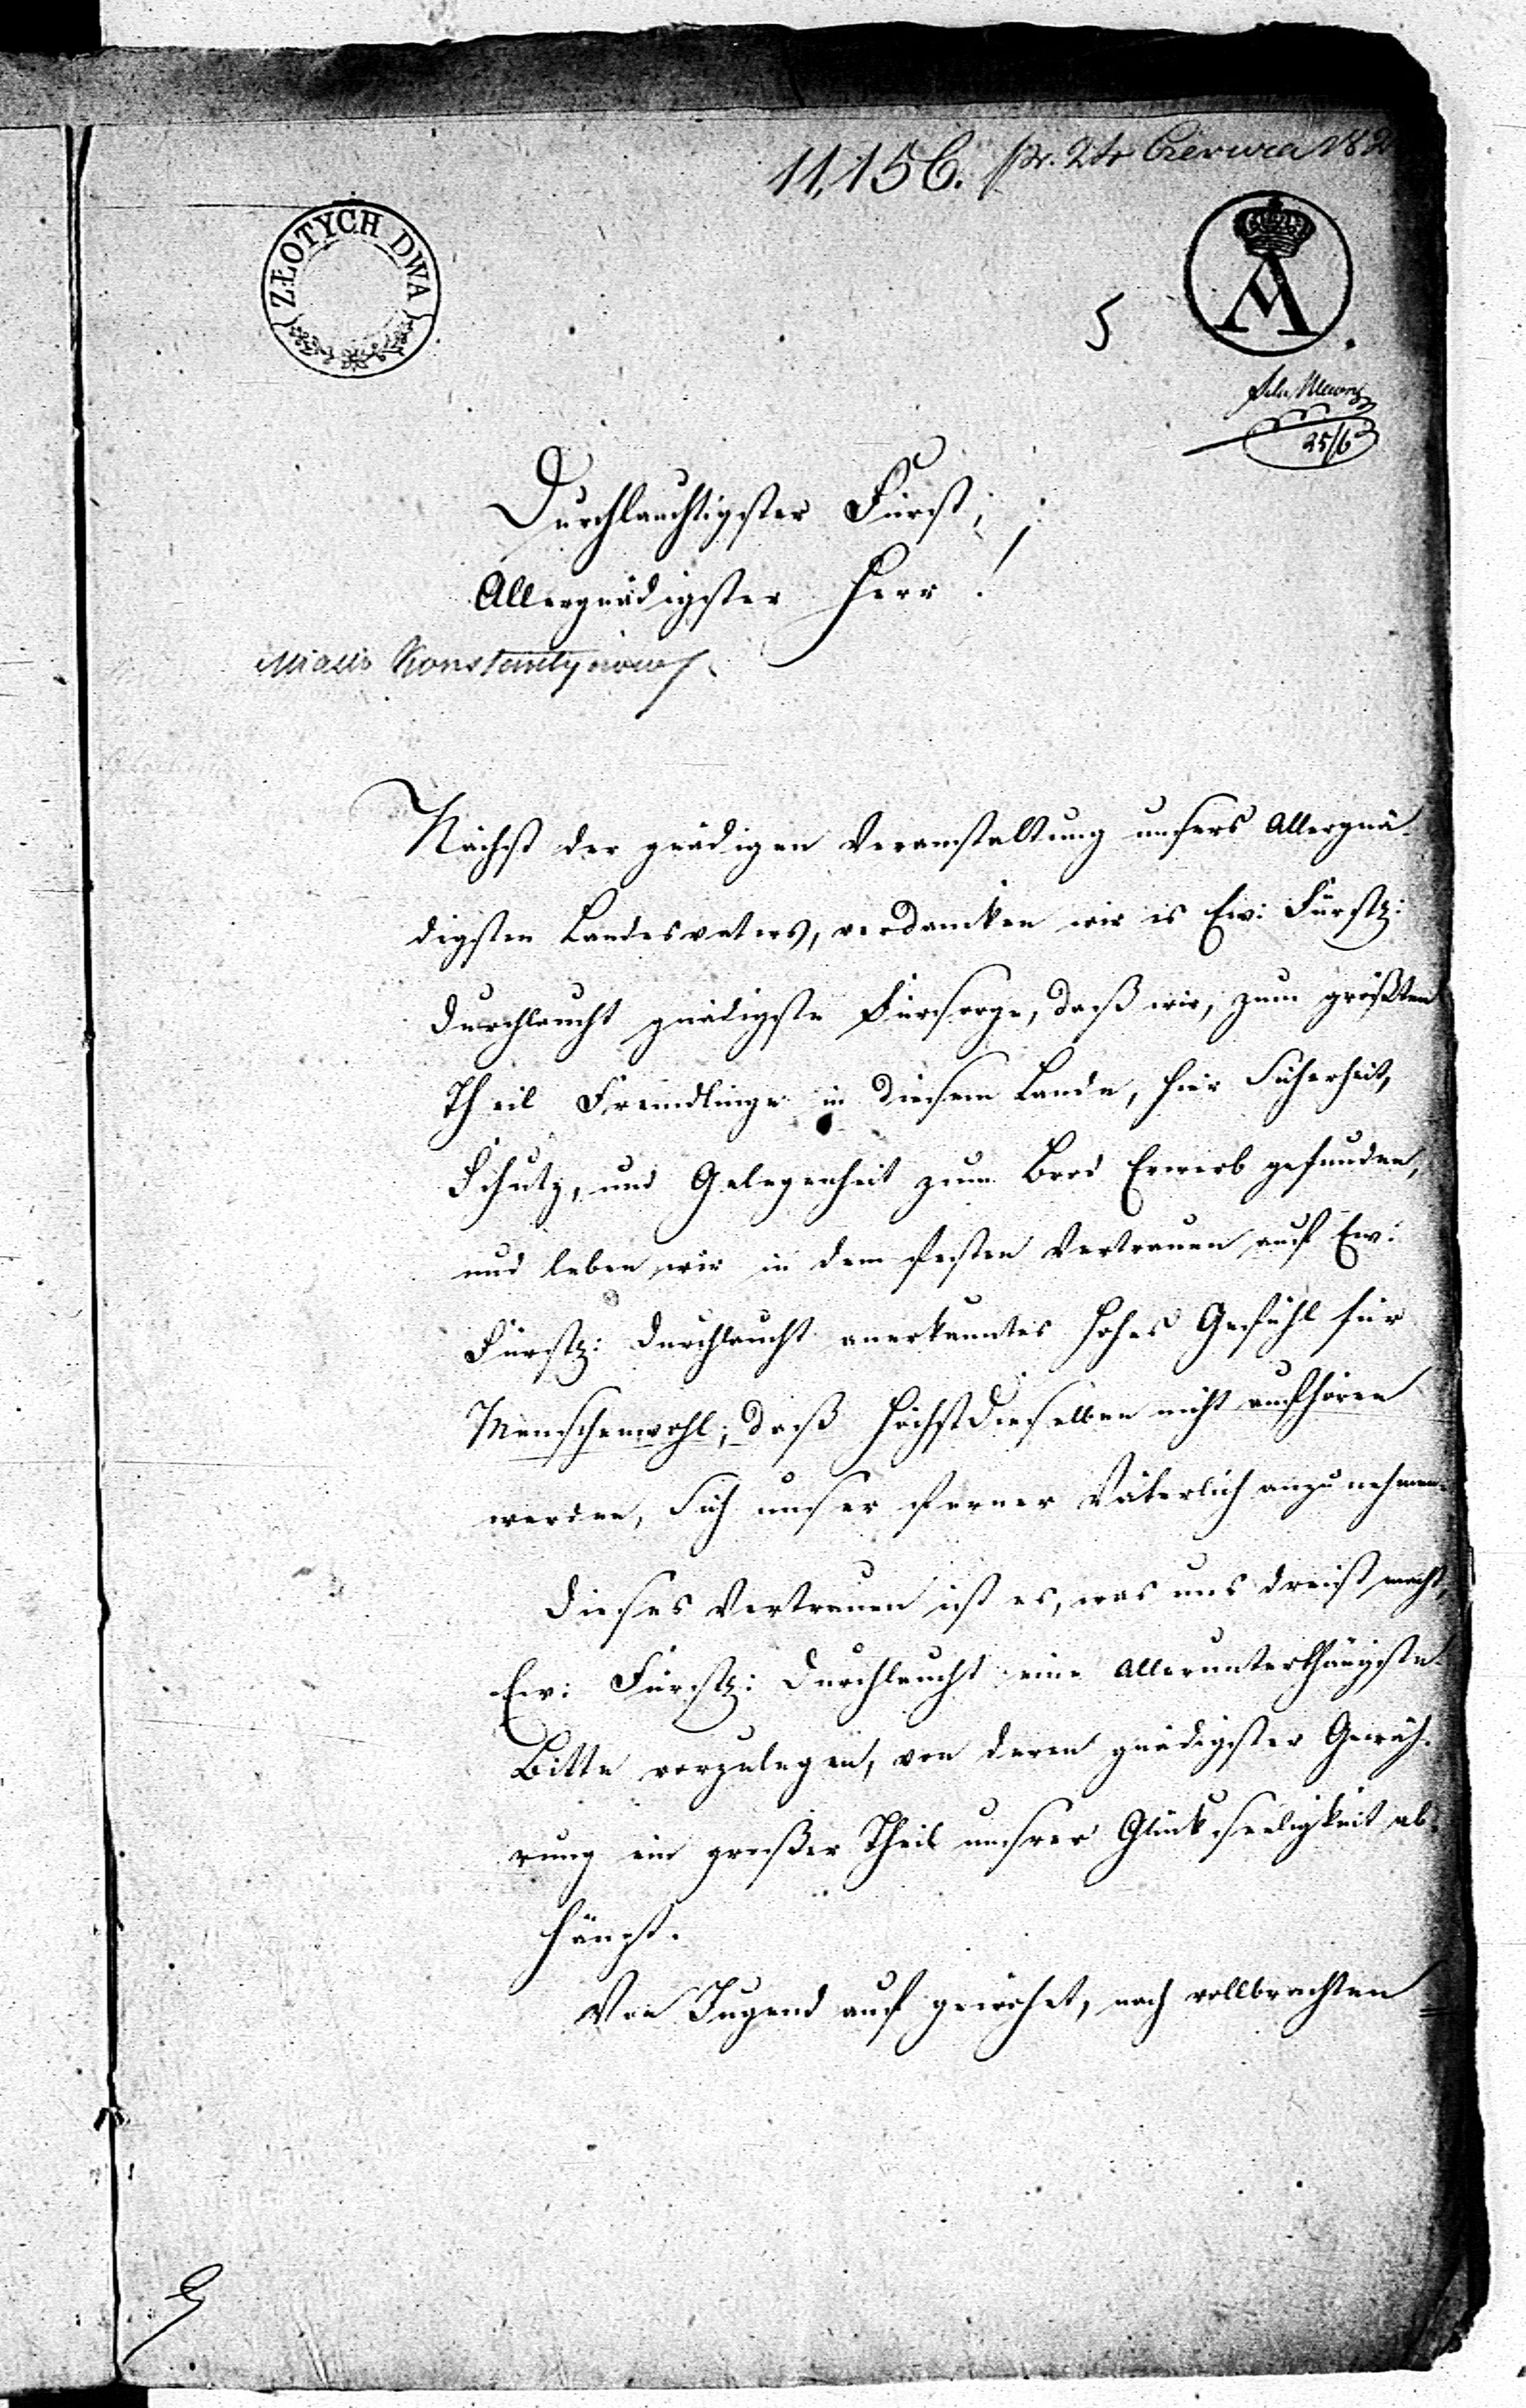 11,156. pr. 24 Czerwca 182
ZŁOTYCH DWA
A
5
25/6
Durchlauchtigster Fürst;
Allergnädigster Herr!
Miasto Konstantynow
Nächst der gnädigen Veranstaltung unsers Allergnä-
digsten Landesvaters, verdancken wir es Ew: Fürstl:
Durchlaucht gnädigste Fürsorge, daß wir, zum größten
Theil Fremdlinge in diesem Lande, hier Sicherheit,
Schutz, und Gelegenheit zum Brod Erwerb gefunden,
und leben wir in dem festen Vertrauen auf Ew:
Fürstl: Durchlaucht anerkanntes hohes Gefühl für
Menschenwohl; daß Höchstdieselben nicht aufhören
werden, Sich unser ferner Väterlich anzunehmen.
Dieses Vertrauen ist es, was uns dreist macht,
Ew: Fürstl: Durchlaucht eine allerunterthänigste
Bitte vorzulegen, von deren gnädigster Gewäh-
rung ein großer Theil unsrer Glückseeligkeit ab-
hängt.
Von Jugend auf gewöhnt, nach vollbrachten